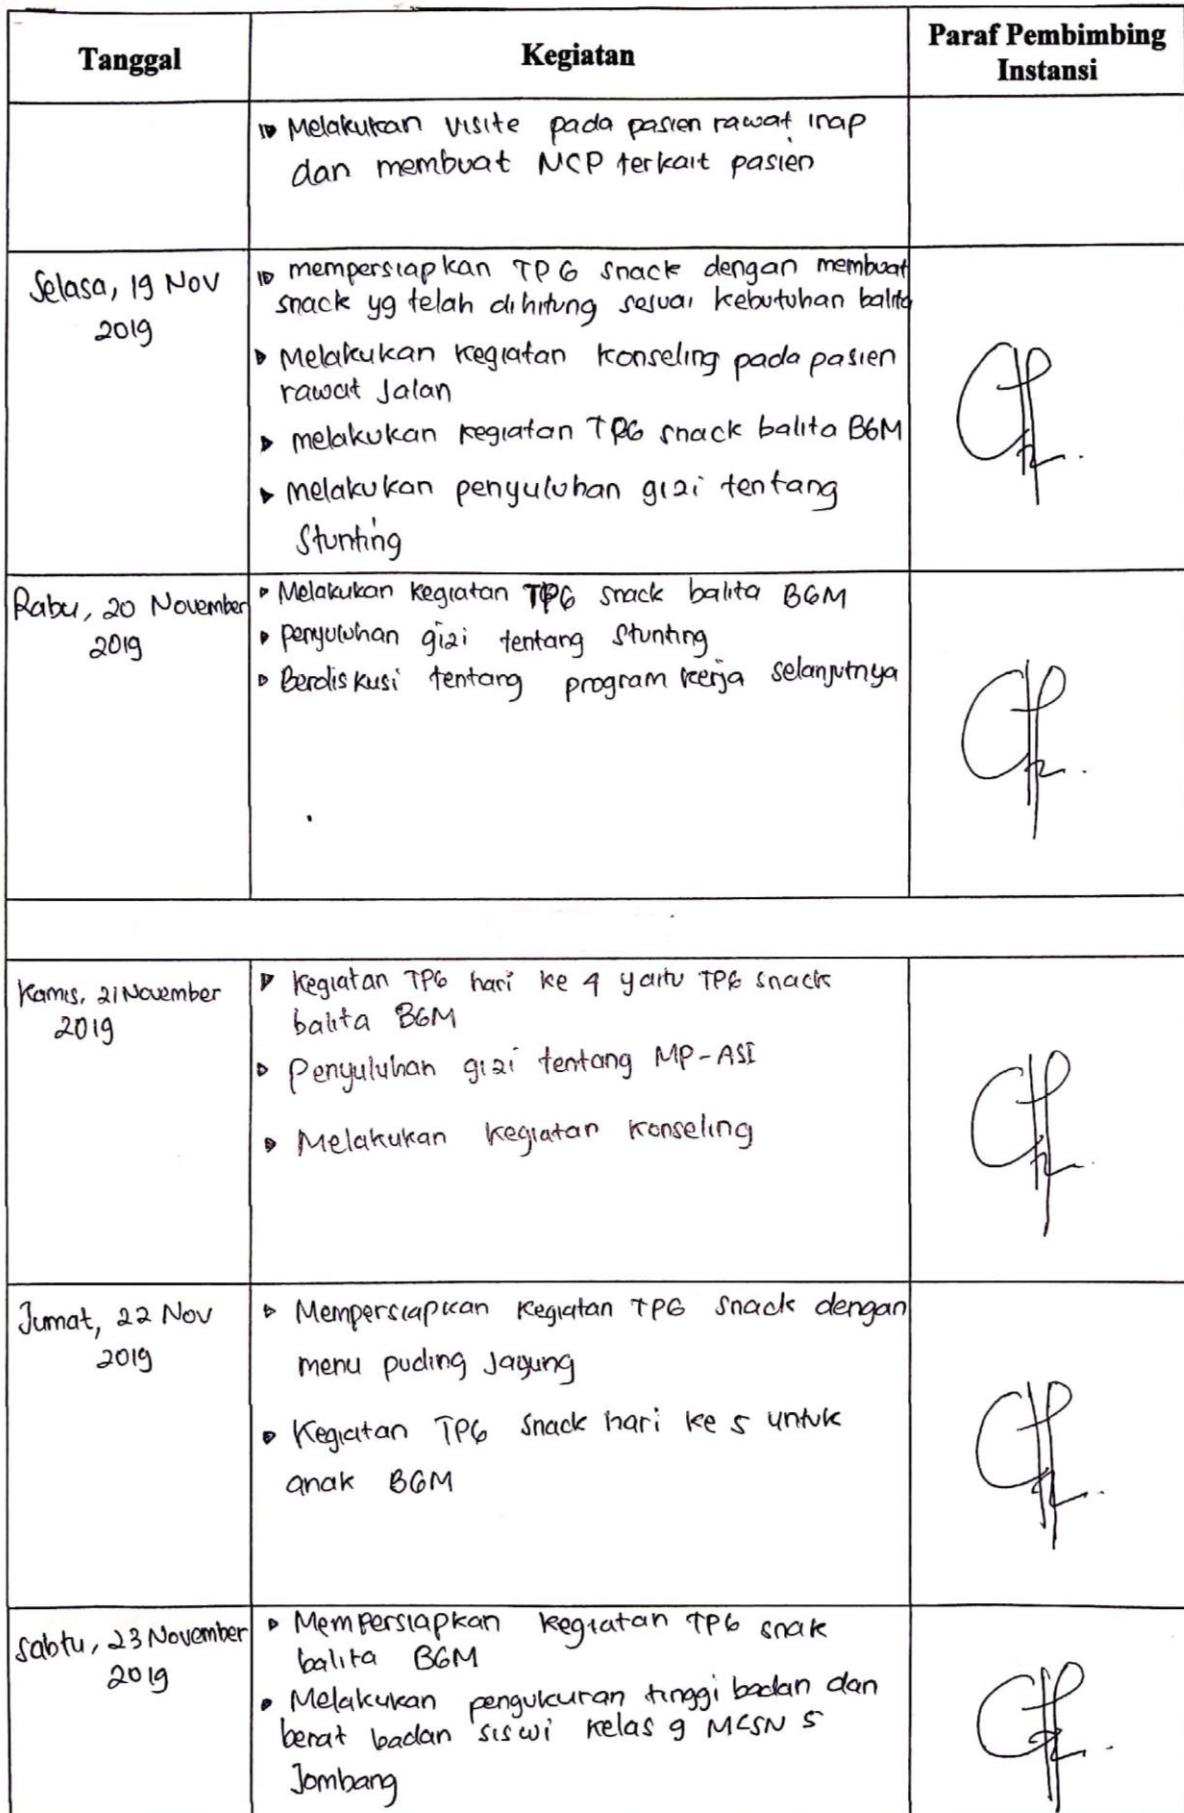 Tanggal
Kegiatan
Paraf Pembimbing
Instansi
Melakukan visite pada pasien rawat inap
dan membuat NCP terkait pasien
Selasa, 19 Nov
2019
mempersiapkan TPG snack dengan membuat
snack yg telah dihitung sesuai kebutuhan balita
Melakukan kegiatan konseling pada pasien
rawat Jalan
melakukan kegiatan TPG snack balita BGM
melakukan penyuluhan gizi tentang
Stunting
Rabu, 20 November
2019
Melakukan kegiatan TPG snack balita BGM
penyuluhan gizi tentang Stunting
Berdiskusi tentang program kerja selanjutnya
Kamis, 21 November
2019
Kegiatan TPG hari ke 4 yaitu TPG snack
balita BGM
Penyuluhan gizi tentang MP-ASI
Melakukan kegiatan konseling
Jumat, 22 Nov
2019
Mempersiapkan kegiatan TPG snack dengan
menu puding Jagung
Kegiatan TPG snack hari ke 5 untuk
anak BGM
Sabtu, 23 November
2019
Mempersiapkan kegiatan TPG snak
balita BGM
Melakukan pengukuran tinggi badan dan
berat badan siswi kelas 9 5
Jombang